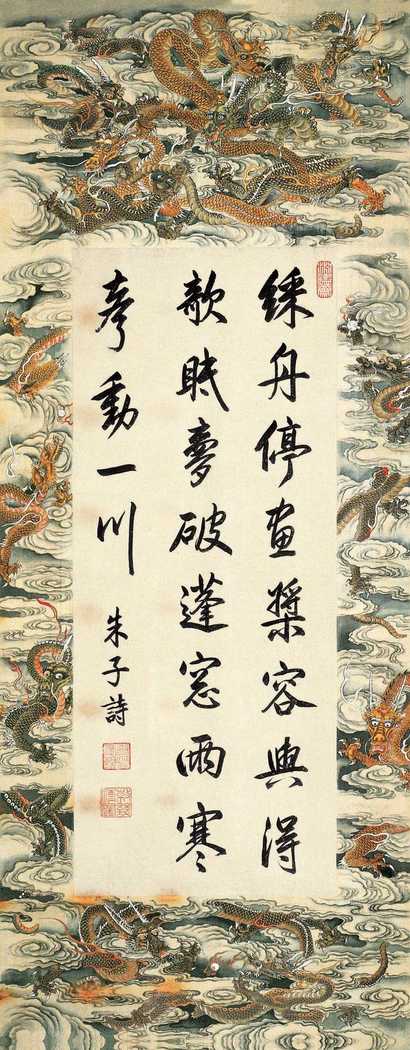 綵舟停画槳容與得
欹眠夢破蓬窓雨寒
聲動一川
朱子詩